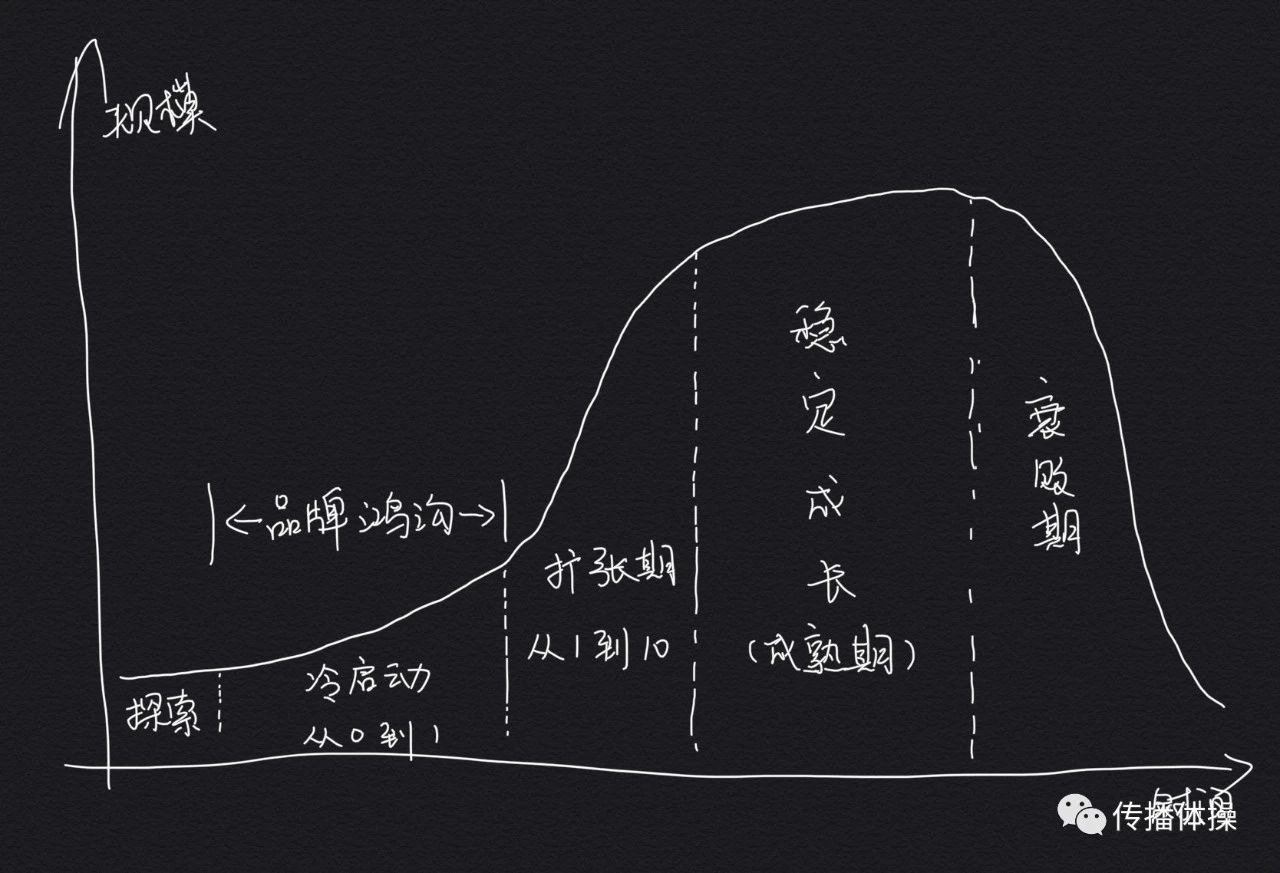 规模
品牌鸿沟
扩张期
从1到10
稳定成长
(成熟期)
衰败期
探索
冷启动
从0到1
时间
传播体操